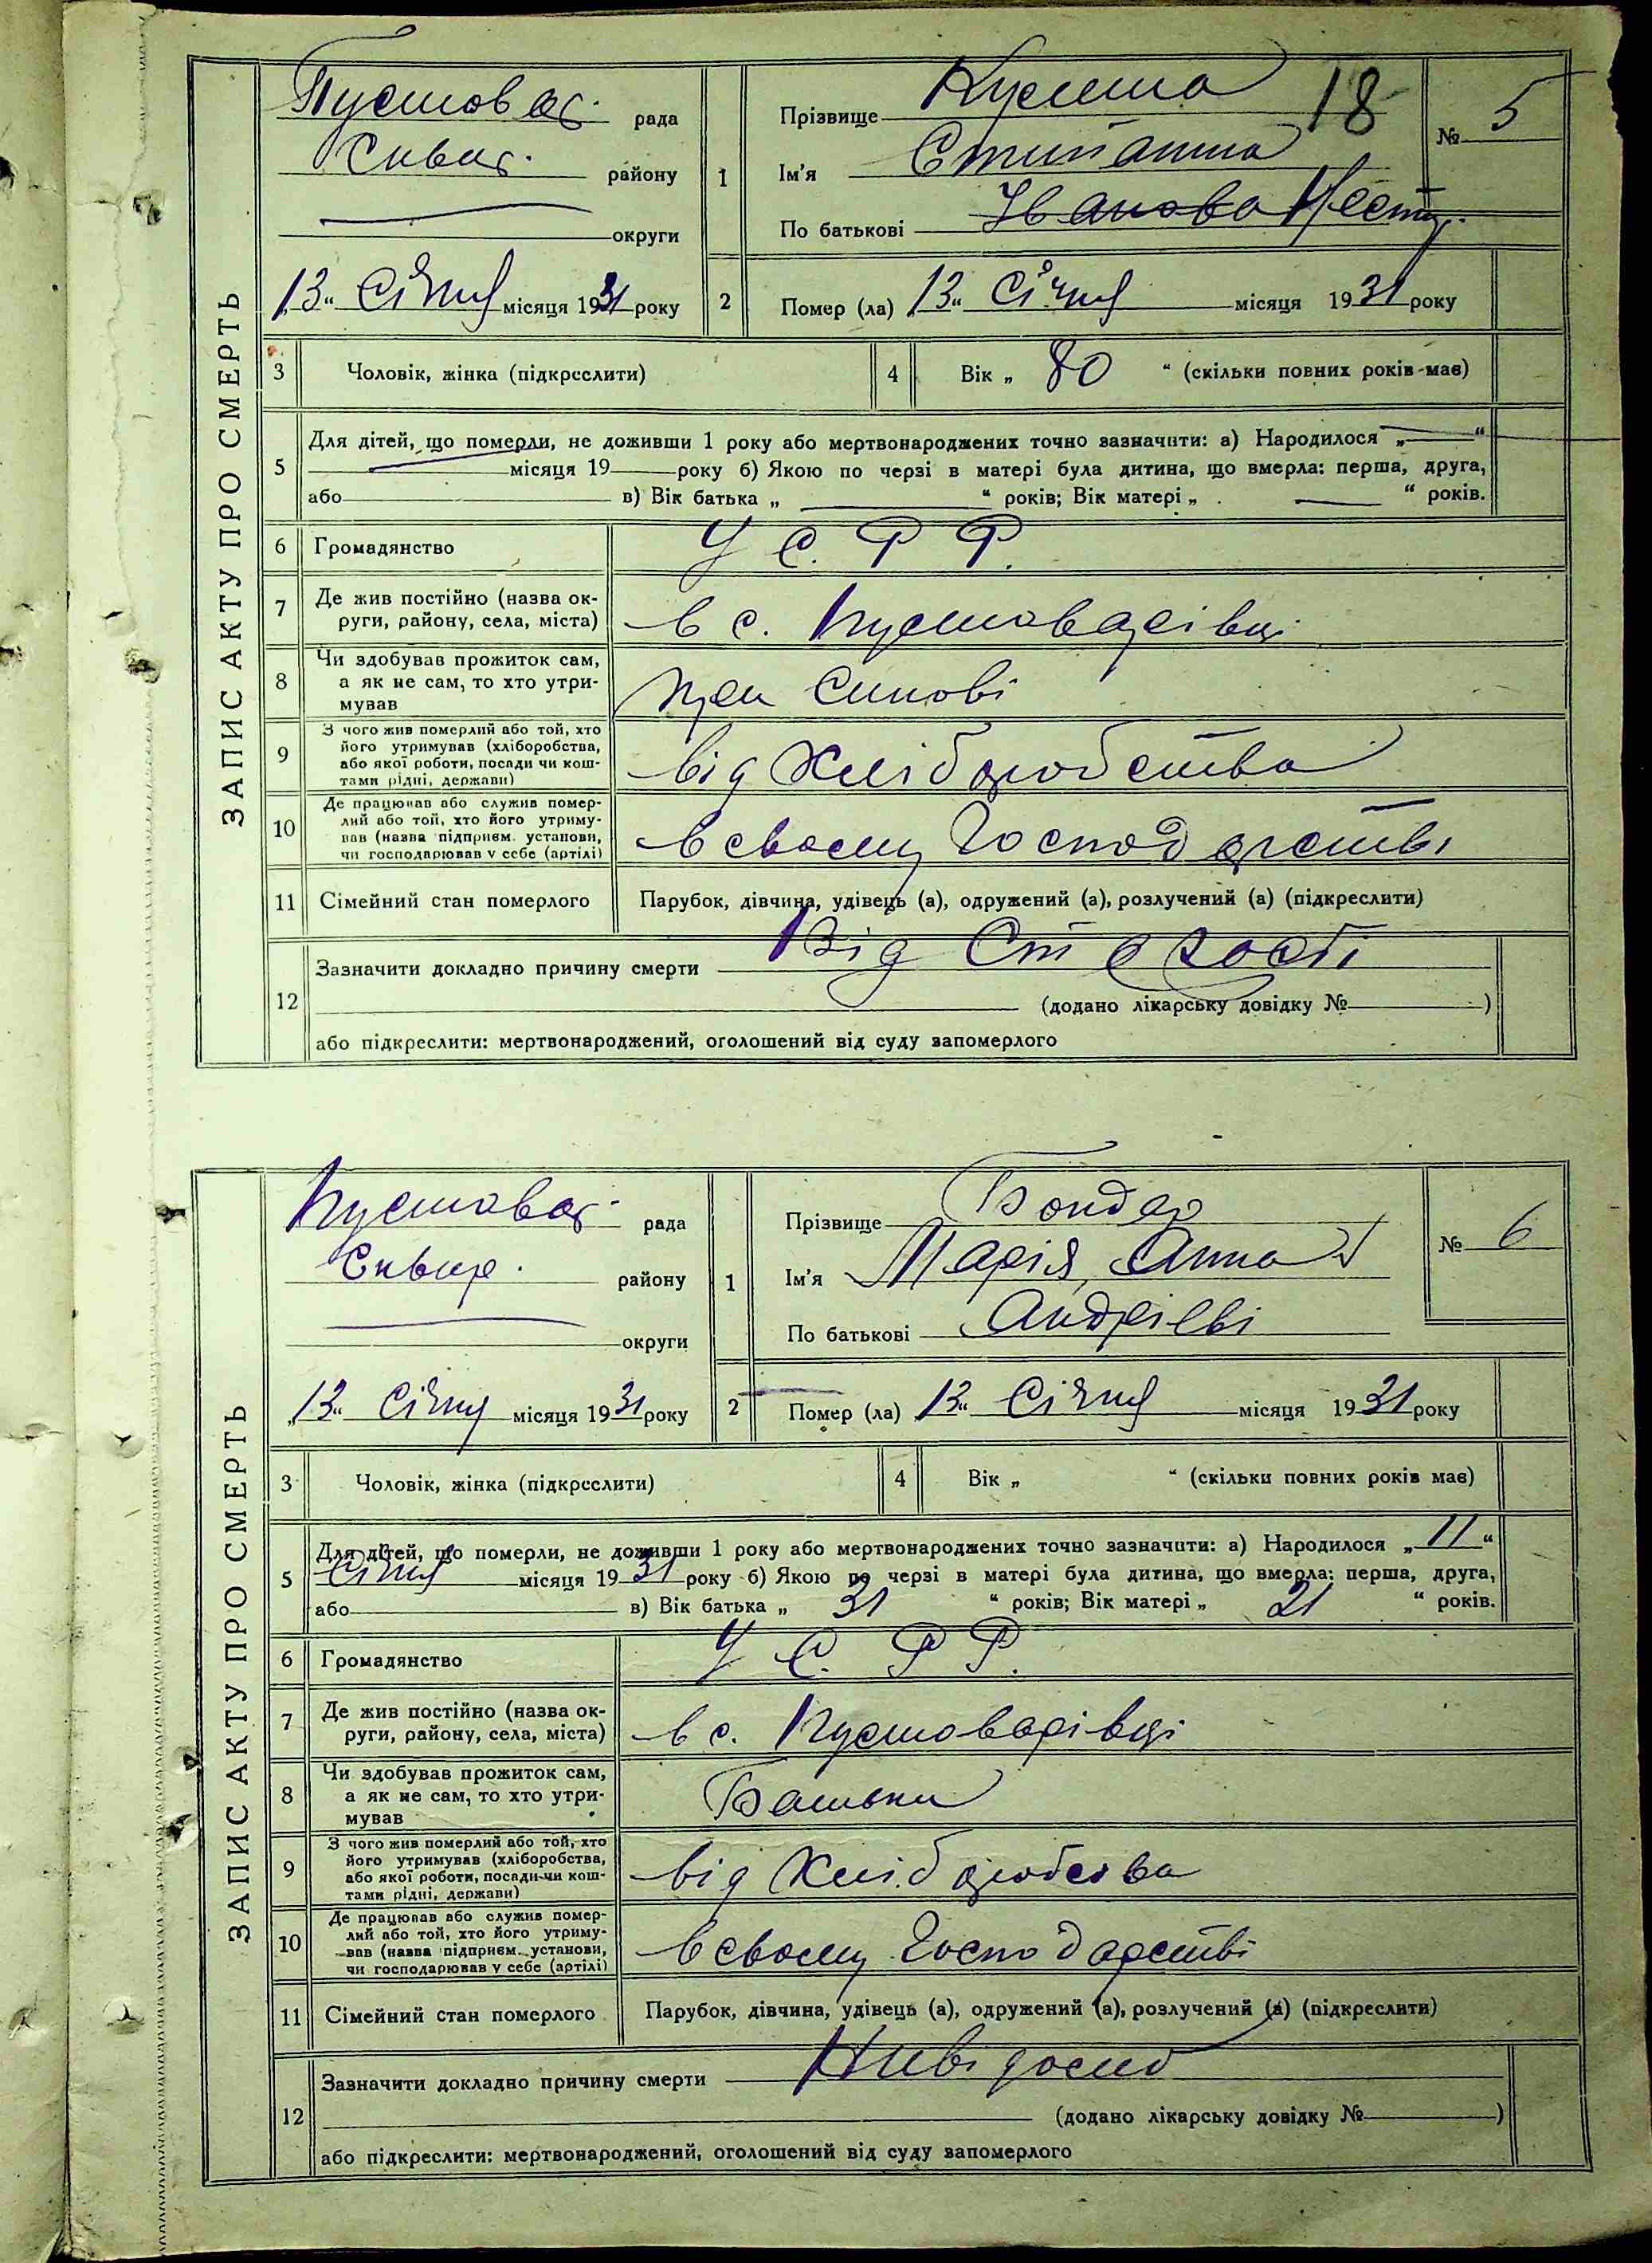 ЗАПИС АКТУ ПРО СМЕРТЬ
Пустовар. рада
Сквир. району
округи
„13“ Січня місяця 1931 року
1
Прізвище
18
Ім'я
По батькові Іванова Нест
№ 5
2 Помер (ла) „13“ Січня місяця 1931 року
3 Чоловік, жінка (підкреслити)
4 Вік „ 80 “ (скільки повних років має)
5 Для дітей, що померли, не доживши 1 року або мертвонароджених точно зазначити: а) Народилося „ “
місяця 19 року б) Якою по черзі в матері була дитина, що вмерла: перша, друга,
або в) Вік батька „ “ років; Вік матері „ “ років.
6 Громадянство У С. Р Р.
7 Де жив постійно (назва ок-
руги, району, села, міста) в с. Пустоварівці
8 Чи здобував прожиток сам,
а як не сам, то хто утри-
мував при Синові
9 З чого жив померлий або той, хто
його утримував (хліборобства,
або якої роботи, посади чи кош-
тами рідні, держави) від Хліборобства
10 Де працював або служив помер-
лий або той, хто його утриму-
вав (назва підприєм. установи,
чи господарював у себе (артілі) в своєму Господарстві
11 Сімейний стан померлого Парубок, дівчина, удівець (а), одружений (а), розлучений (а) (підкреслити)
12 Зазначити докладно причину смерти Від Старости
(додано лікарську довідку № )
або підкреслити: мертвонароджений, оголошений від суду запомерлого
ЗАПИС АКТУ ПРО СМЕРТЬ
Пустовар. рада
Сквир. району
округи
„13“ Січня місяця 1931 року
1
Прізвище Бондар
Ім'я Марія, Анна
По батькові Андрієві
№ 6
2 Помер (ла) 13“ Січня місяця 1931 року
3 Чоловік, жінка (підкреслити)
4 Вік „ “ (скільки повних років має)
5 Для дітей, що померли, не доживши 1 року або мертвонароджених точно зазначити: а) Народилося „ 11 “
Січня місяця 1931 року б) Якою по черзі в матері була дитина, що вмерла: перша, друга,
або в) Вік батька „ 31 “ років; Вік матері „ 21 “ років.
6 Громадянство У С. Р Р.
7 Де жив постійно (назва ок-
руги, району, села, міста) в с. Пустоварівці
8 Чи здобував прожиток сам,
а як не сам, то хто утри-
мував Батьки
9 З чого жив померлий або той, хто
його утримував (хліборобства,
або якої роботи, посади чи кош-
тами рідні, держави) від Хліборобства
10 Де працював або служив помер-
лий або той, хто його утриму-
вав (назва підприєм. установи,
чи господарював у себе (артілі) в своєму Господарстві
11 Сімейний стан померлого Парубок, дівчина, удівець (а), одружений (а), розлучений (а) (підкреслити)
12 Зазначити докладно причину смерти
(додано лікарську довідку № )
або підкреслити: мертвонароджений, оголошений від суду запомерлого